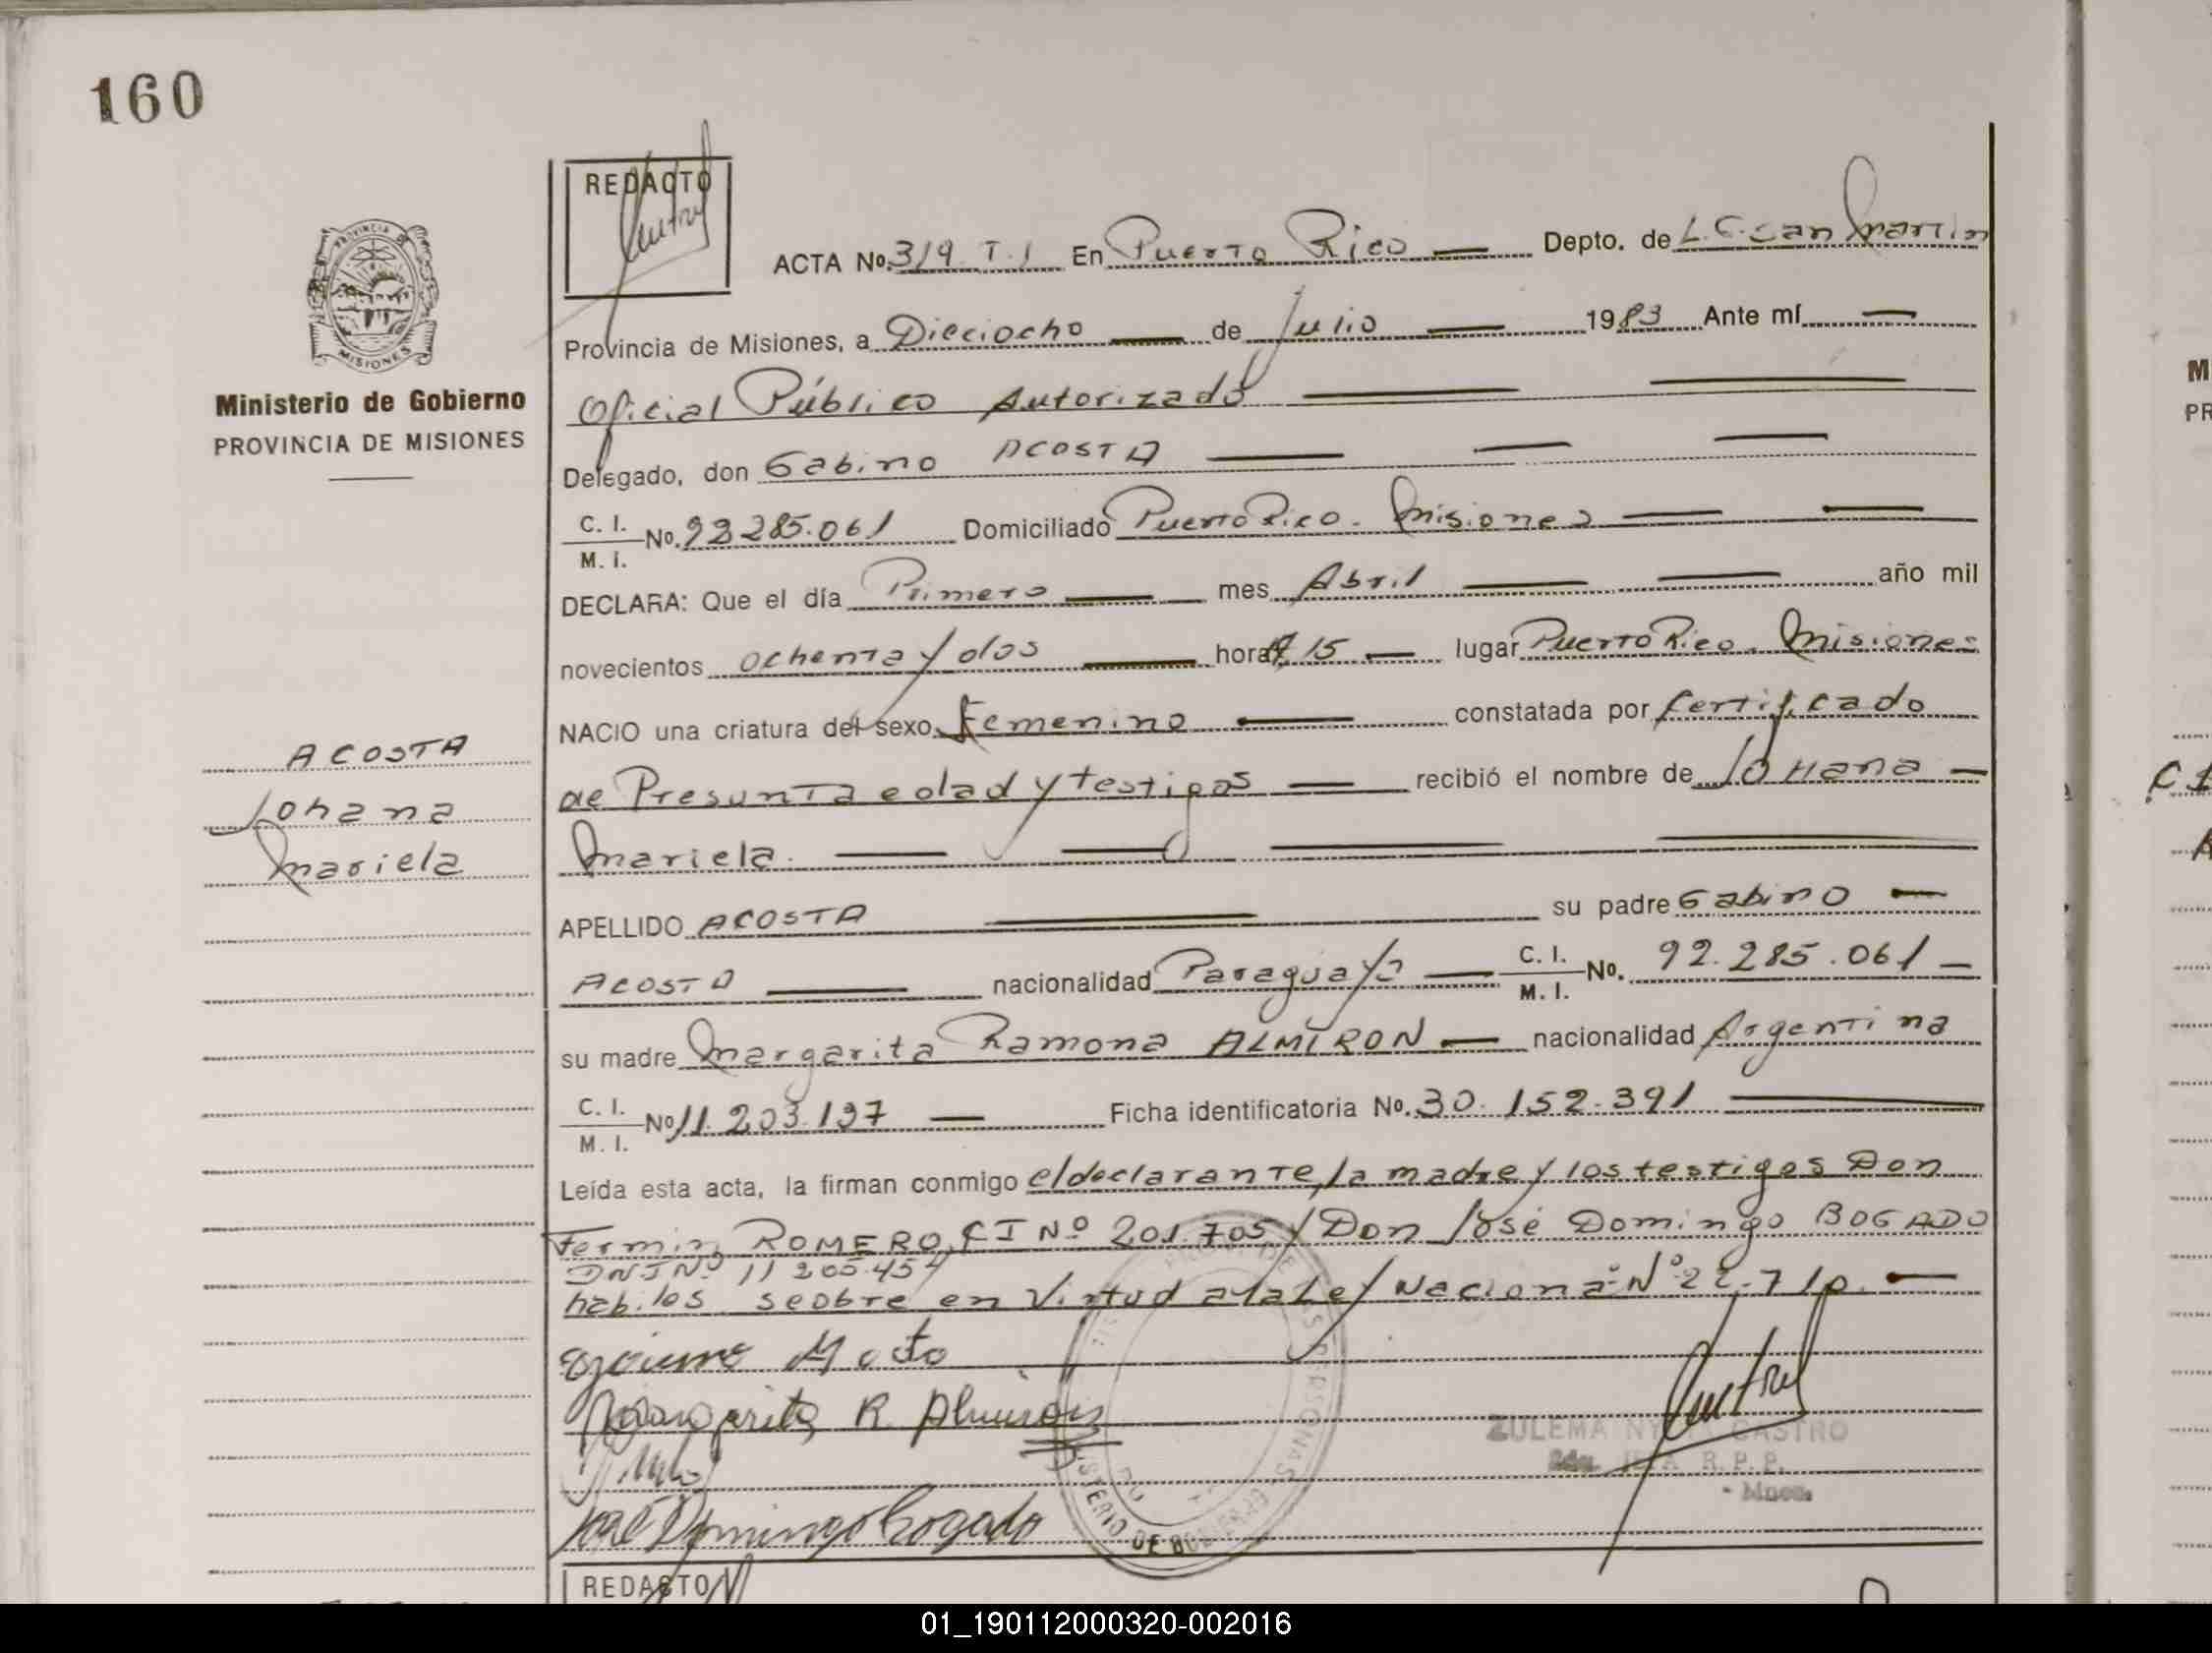 160
REDACTO
ACTA No. 319 T.I En Puerto Rico — Depto. de L. G. San Martin
Provincia de Misiones, a Dieciocho — de Julio — 1983 Ante mí —
Oficial Público Autorizado
Delegado, don Gabino ACOSTA
PROVINCIA
MISIONES
Ministerio de Gobierno
PROVINCIA DE MISIONES
C. I.
M. I. No. 92.285.061 Domiciliado Puerto Rico. Misiones
DECLARA: Que el día Primero — mes Abril — año mil
novecientos ochenta y dos — hora 15 — lugar Puerto Rico. Misiones
NACIO una criatura del sexo Femenino — constatada por Certificado
de Presunta edad y testigos — recibió el nombre de Johana —
Mariela.
ACOSTA
Johana
Mariela
APELLIDO ACOSTA — su padre Gabino —
ACOSTA — nacionalidad Paraguaya — C. I.
M. I. No. 92.285.061 —
su madre Margarita Ramona ALMIRON — nacionalidad Argentina
C. I.
M. I. No 11.203.137 — Ficha identificatoria No. 30.152.391
Leída esta acta, la firman conmigo el declarante, la madre y los testigos Don
Fermin ROMERO, CI Nº 201.705 y Don José Domingo BOGADO
DNI Nº 11 205.454
habiles seobre en Virtud a la Ley Nacional Nº 22.710. —
Margarita R. Almiron
José Domingo Bogado
ZULEMA CASTRO
JEFA R.P.P.
Mnes.
REDACTO
01_190112000320-002016